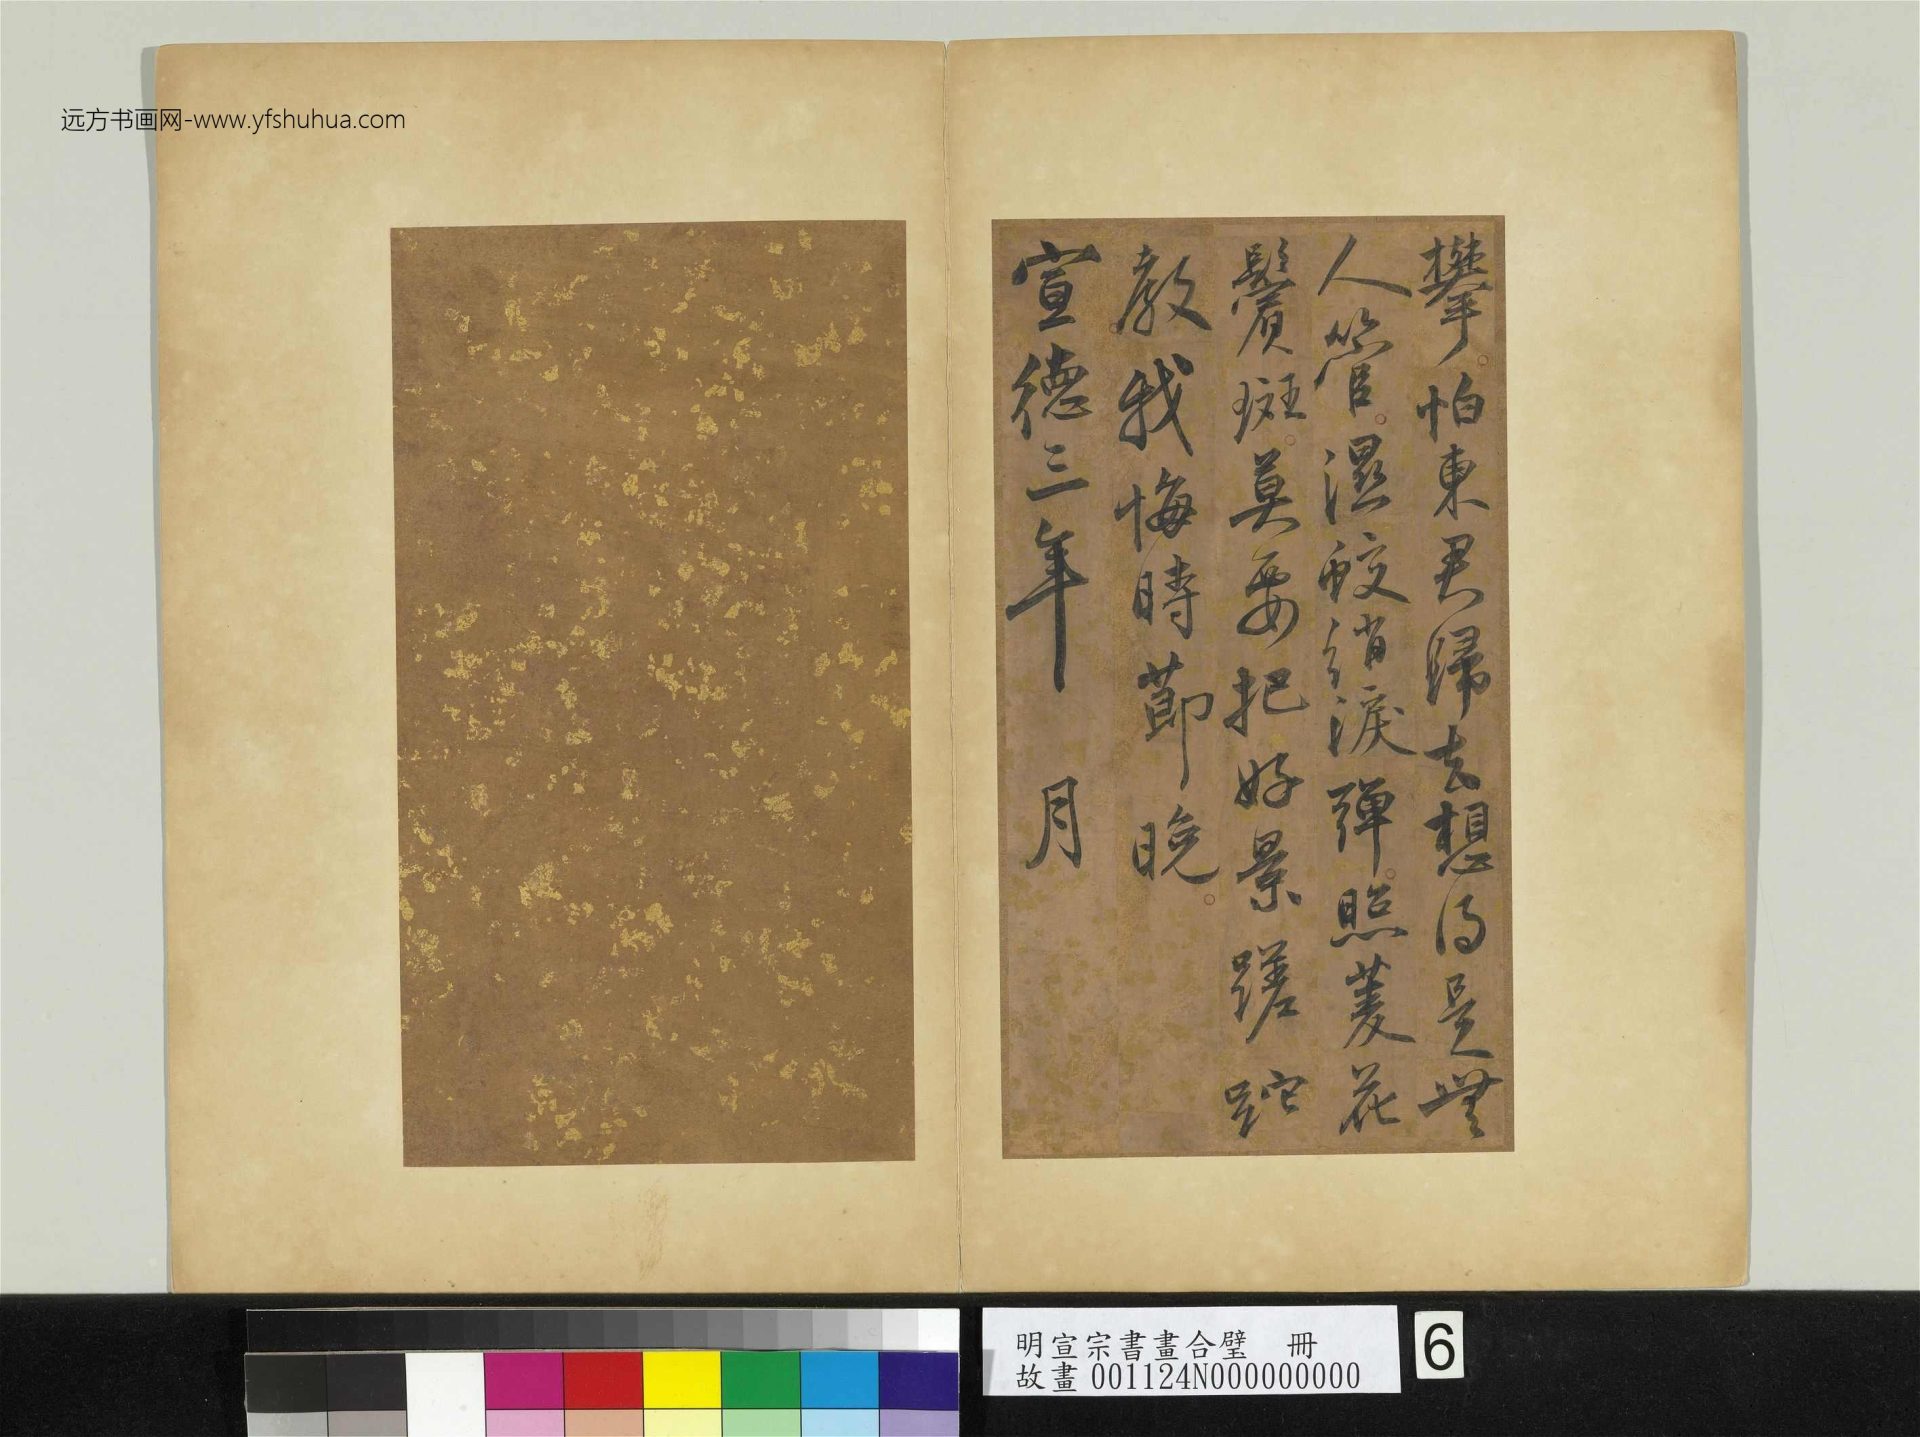 远方书画网-www.yfshuhua.com
攀。怕東君歸去想得是無
人管。濕鮫綃淚彈。照菱花
鬢斑。莫要把好景蹉跎
教我悔時節晚。
宣德三年 月
明宣宗書畫合璧 冊
故畫 001124N000000000
6